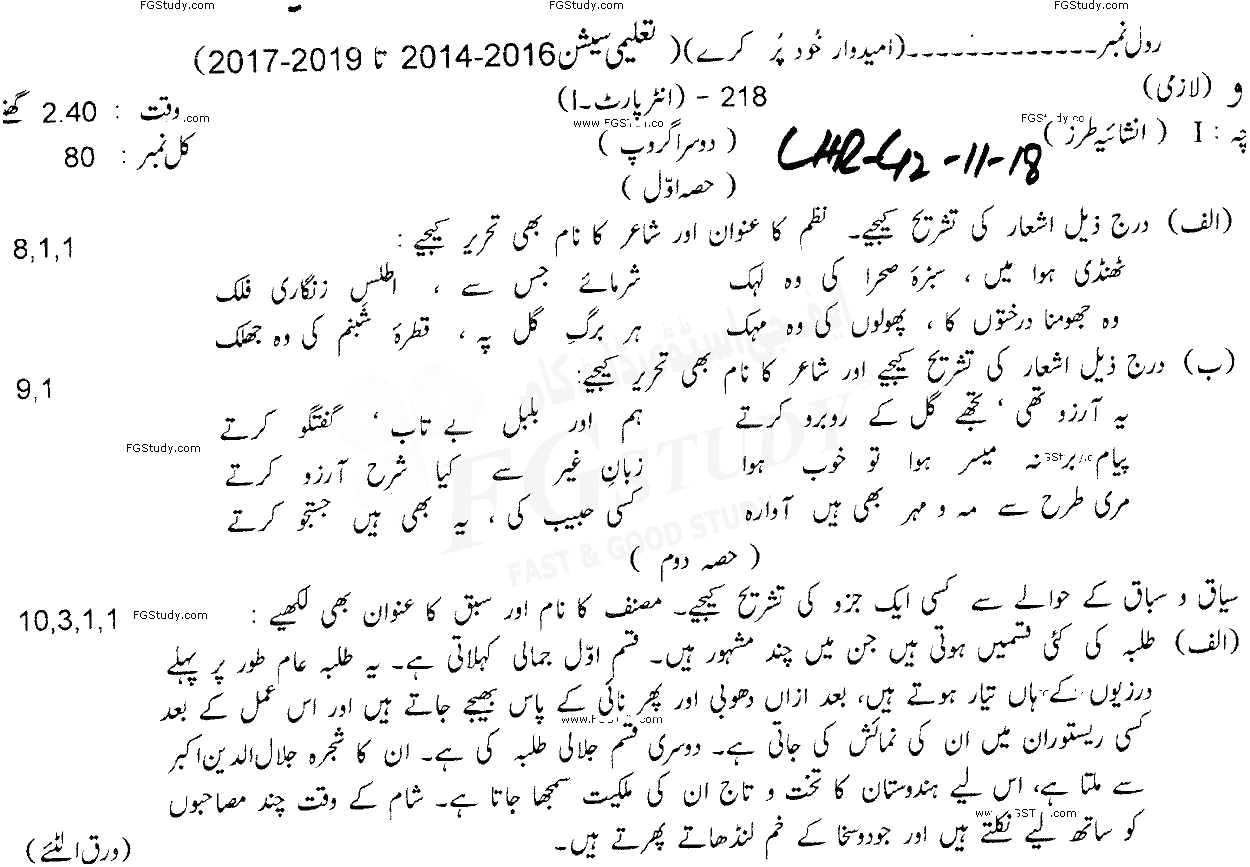 FGStudy.com FGStudy.com FGStudy.com
رول نمبر ------------- (امیدوار خود پُر کرے) ( تعلیمی سیشن 2016-2014 تا 2019-2017)
و (لازمی) 218 - (انٹر پارٹ-I) وقت : 2.40 گھنٹے
چہ : I ( انشائیہ طرز ) (دوسرا گروپ ) کل نمبر : 80
www.FGSTudy.com
LHR-G2-11-18
( حصہ اوّل )
(الف) درج ذیل اشعار کی تشریح کیجیے۔ نظم کا عنوان اور شاعر کا نام بھی تحریر کیجیے : 8,1,1
ٹھنڈی ہوا میں ، سبزۂ صحرا کی وہ لہک شرمائے جس سے ، اطلسِ زنگاری فلک
وہ جھومنا درختوں کا ، پھولوں کی وہ مہک ہر برگِ گل پہ ، قطرۂ شبنم کی وہ جھلک
(ب) درج ذیل اشعار کی تشریح کیجیے اور شاعر کا نام بھی تحریر کیجیے: 9,1
یہ آرزو تھی ، تجھے گل کے روبرو کرتے ہم اور بلبل بے تاب ، گفتگو کرتے
FGStudy.com
پیام بر نہ میسر ہوا تو خوب ہوا زبانِ غیر سے کیا شرح آرزو کرتے
مری طرح سے مہ و مہر بھی ہیں آوارہ کسی حبیب کی ، یہ بھی ہیں جستجو کرتے
ایف جی اسٹڈی ڈاٹ کام
FGSTUDY
FAST & GOOD STUDY
( حصہ دوم )
سیاق و سباق کے حوالے سے کسی ایک جزو کی تشریح کیجیے۔ مصنف کا نام اور سبق کا عنوان بھی لکھیے : 10,3,1,1
FGStudy.com
(الف) طلبہ کی کئی قسمیں ہوتی ہیں جن میں چند مشہور ہیں۔ قسم اوّل جمالی کہلاتی ہے۔ یہ طلبہ عام طور پر پہلے
درزیوں کے ہاں تیار ہوتے ہیں، بعد ازاں دھوبی اور پھر نائی کے پاس بھیجے جاتے ہیں اور اس عمل کے بعد
کسی ریستوران میں ان کی نمائش کی جاتی ہے۔ دوسری قسم جلالی طلبہ کی ہے۔ ان کا شجرہ جلال الدین اکبر
سے ملتا ہے، اس لیے ہندوستان کا تخت و تاج ان کی ملکیت سمجھا جاتا ہے۔ شام کے وقت چند مصاحبوں
کو ساتھ لیے نکلتے ہیں اور جودوسخا کے خم لنڈھاتے پھرتے ہیں۔
(ورق الٹئے)